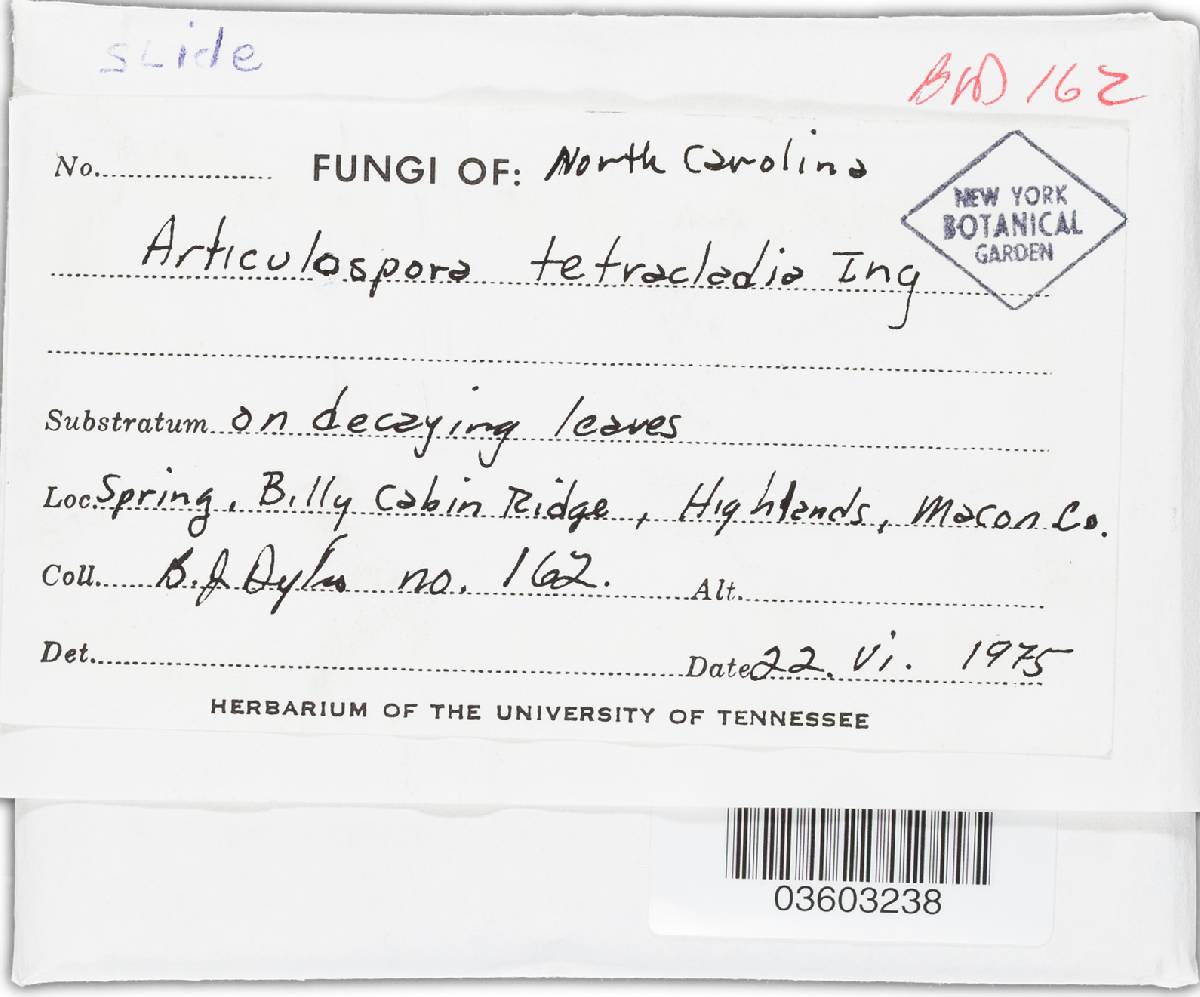 sLide
BHD 162
No. FUNGI OF: North Carolina
NEW YORK
BOTANICAL
GARDEN
Articulospora tetracladia Ing
Substratum on decaying leaves
Loc. Spring, Billy Cabin Ridge, Highlands, Macon Co.
Coll. B.J Dyko no. 162. Alt.
Det. Date 22. Vi. 1975
HERBARIUM OF THE UNIVERSITY OF TENNESSEE
03603238